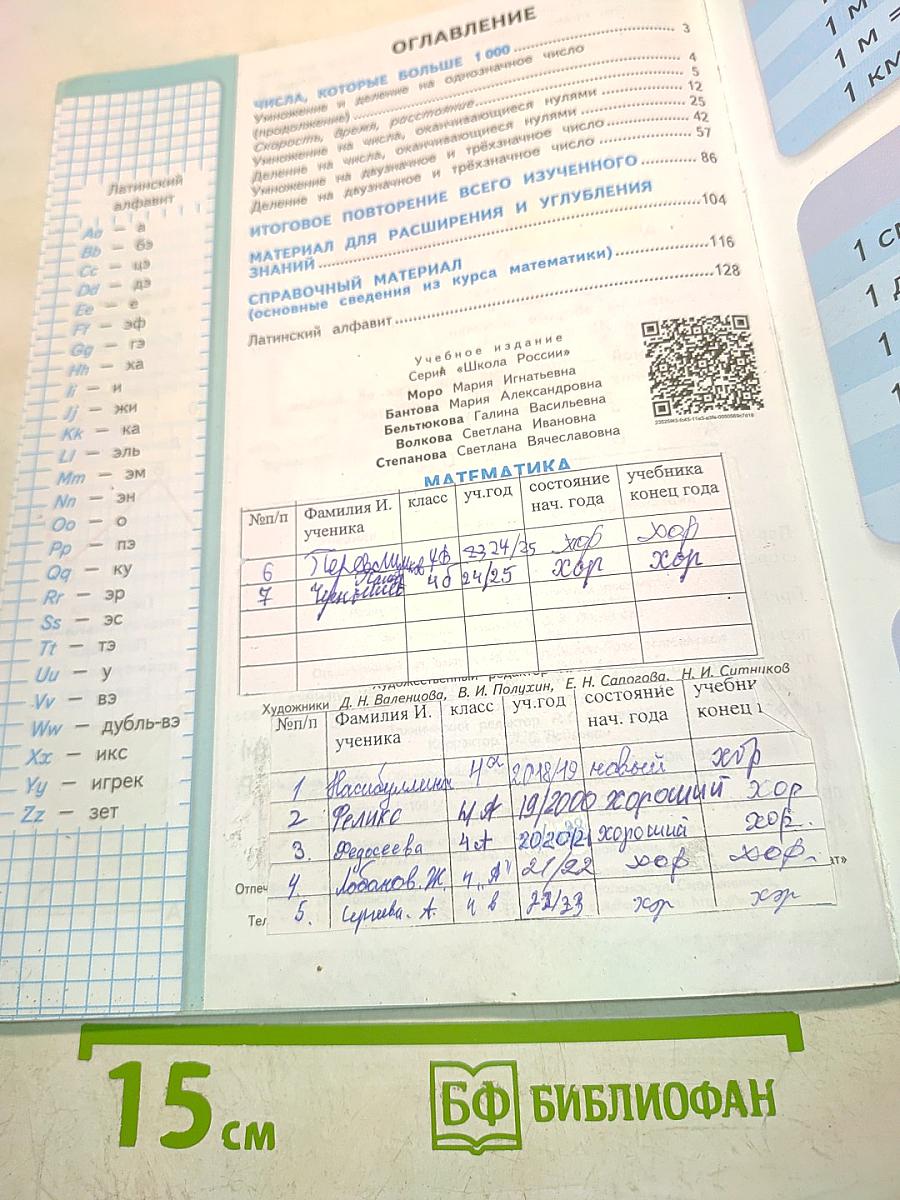 ОГЛАВЛЕНИЕ
ЧИСЛА, КОТОРЫЕ БОЛЬШЕ 1 000 ........ 3
Умножение и деление на однозначное число
(продолжение) ........ 4
Скорость, время, расстояние ........ 5
Умножение на числа, оканчивающиеся нулями ........ 12
Деление на числа, оканчивающиеся нулями ........ 25
Умножение на двузначное и трёхзначное число ........ 42
Деление на двузначное и трёхзначное число ........ 57
ИТОГОВОЕ ПОВТОРЕНИЕ ВСЕГО ИЗУЧЕННОГО ........ 86
МАТЕРИАЛ ДЛЯ РАСШИРЕНИЯ И УГЛУБЛЕНИЯ
ЗНАНИЙ ........ 104
СПРАВОЧНЫЙ МАТЕРИАЛ
(основные сведения из курса математики) ........ 116
Латинский алфавит ........ 128
Латинский
алфавит
Aa — а
Bb — бэ
Cc — цэ
Dd — дэ
Ee — е
Ff — эф
Gg — гэ
Hh — ха
Ii — и
Jj — жи
Kk — ка
Ll — эль
Mm — эм
Nn — эн
Oo — о
Pp — пэ
Qq — ку
Rr — эр
Ss — эс
Tt — тэ
Uu — у
Vv — вэ
Ww — дубль-вэ
Xx — икс
Yy — игрек
Zz — зет
Учебное издание
Серия «Школа России»
Моро Мария Игнатьевна
Бантова Мария Александровна
Бельтюкова Галина Васильевна
Волкова Светлана Ивановна
Степанова Светлана Вячеславовна
МАТЕМАТИКА
№п/п Фамилия И. ученика класс уч.год состояние нач. года учебника конец года
6 24/25 хор хор
7 4б 24/25 хор хор
Художники Д. Н. Валенцова, В. И. Полухин, Е. Н. Сапогова, Н. И. Ситников
№п/п Фамилия И. ученика класс уч.год состояние нач. года учебни конец
1 Насибуллина 4а 2018/19 новый хор
2 Феликс 4 А 19/2000 хороший хор
3. Федосеева 4 А 2020/21 хороший хор.
4. Лобанов. Ж 4 „А" 21/22 хор хор.
5. Сергеева. А. 4 в 22/23 хор хор
Отпеч
Тел
ат»
1 м
1 м =
1 км
1 с
1 д
1
15 см
БФ БИБЛИОФАН